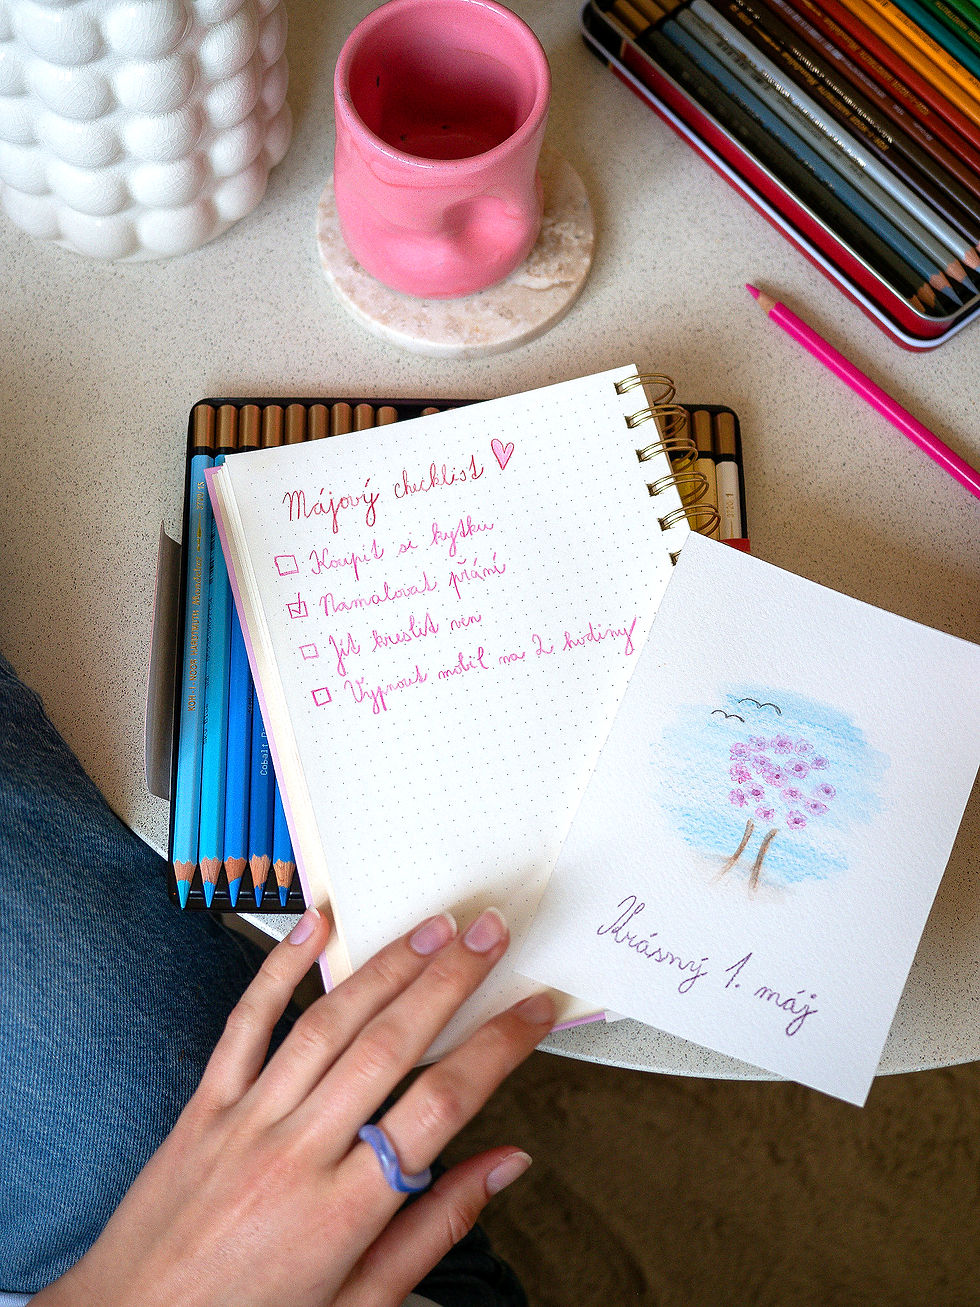 Májový checklist
Koupit si kytku
Namalovat přání
Jít kreslit ven
Vypnout mobil na 2 hodiny
Krásný 1. máj